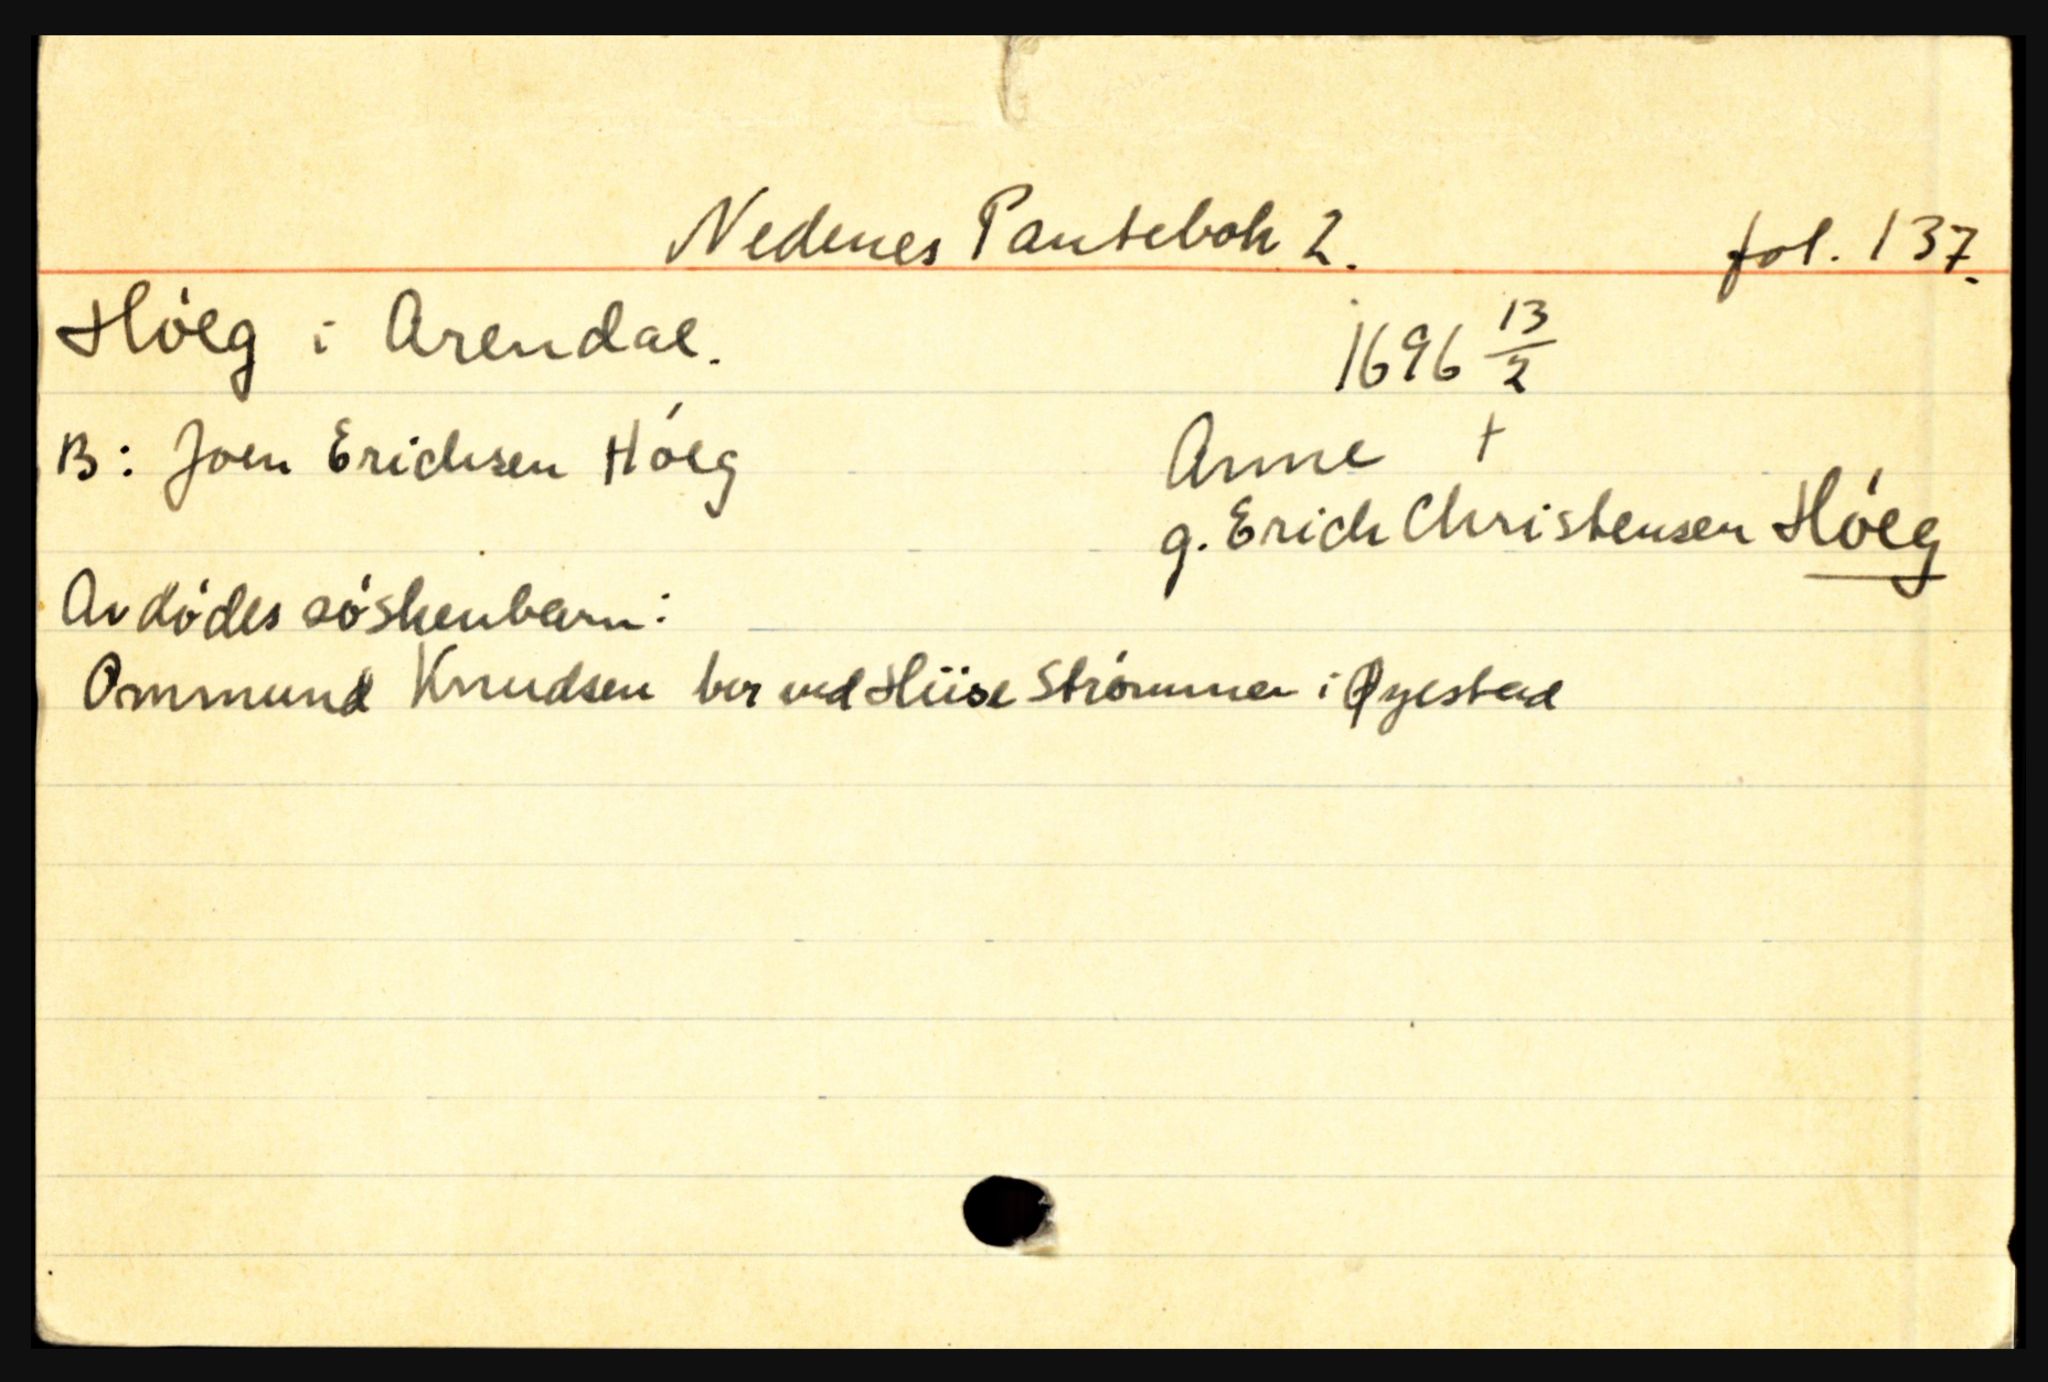 Nedenes Pantebok 2. fol. 137.
Høeg i Arendal. 1696 13/2
B: Joen Erichsen Høeg Anne †
g. Erich Christensen Høeg
Avdødes søskenbarn:
Ommund Knudsen bor ved Hiise Strømmen i Øyestad